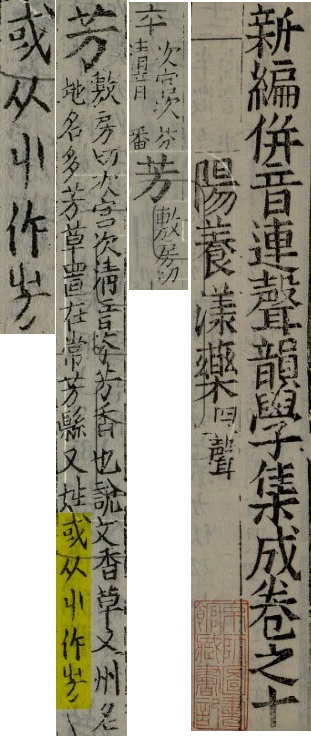 新編併音連聲韻學集成卷之十
陽養漾藥四聲
平
次宮次 芬
清音 番
芳 敷房切
芳 敷房切次宮次清音芬芳香也說文香草又州名
地名多芳草置在常芳縣又姓或从屮作
或从屮作